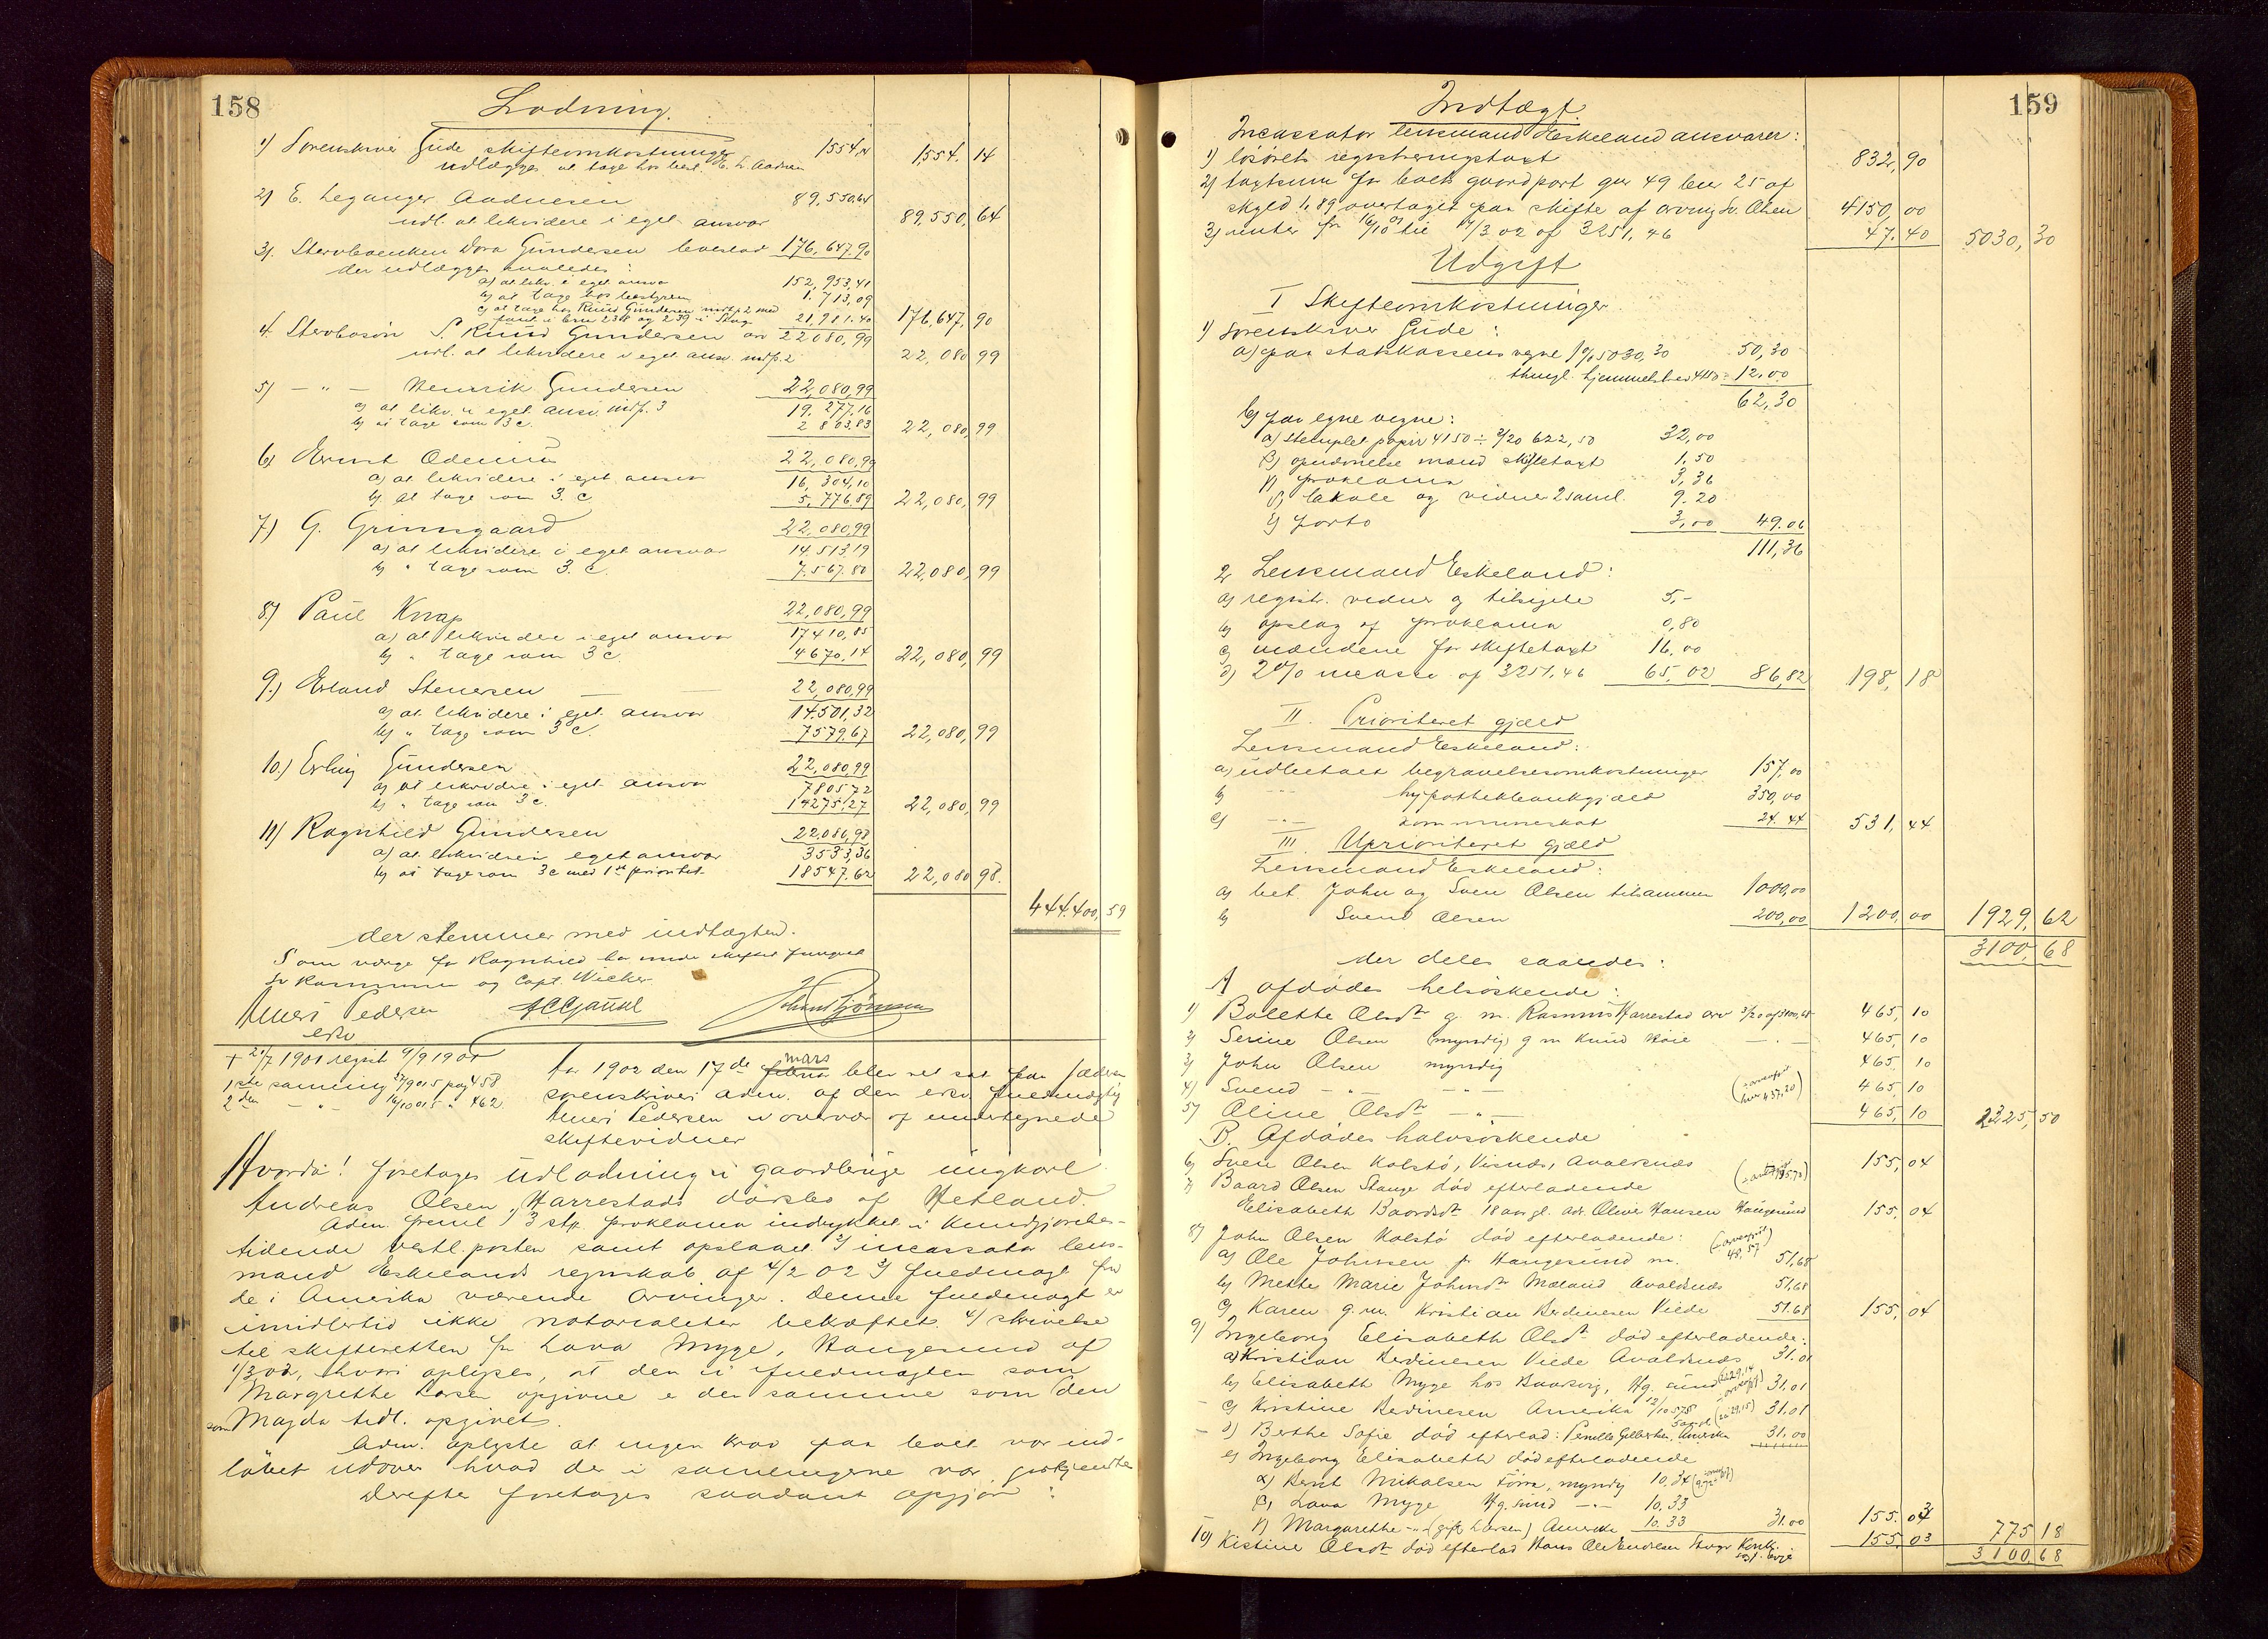 158
Lodning.
1) Sorenskriver Gude skifteomkostninger 1554,14 1554. 14
udlægges at tage hos best. E. L. Aadnesen
2) E. Leganger Aadnesen 89.550,64
udl. at likvidere i eget ansvar 89.550, 64
3). Stervboenken Dora Gundersen boeslod 176,647.90
der udlægges saaledes:
a) at likv. i eget ansvar 152,953,41
b) at tage hos bestyren 1.713,09
c) at tage hos Knud Gundersen mod p. 2 med
pant i bno 238 og 239 i Stvg 21,981.40 176,647, 90
4. Stervbosøn S. Knud Gundersen arv 22080,99
udl. at likvidere i eget ansv. mod p. 2 22,080 99
5) — " — Henrik Gundersen 22,080,99
a) at likv. i eget ansv. mod p. 3 19.277.16
b) at tage som 3c. 2 803,83 22,080, 99
6) Ernst Odemu 22,080,99
a) at likvidere i eget ansvar 16,304,10
b). at tage som 3. c 5.776 89 22,080, 99
7) G. Grimsgaard 22,080,99
a) at likvidere i eget ansvar 14.513,19
b) " tage som 3. c. 7.567.80 22,080, 99
8) Paul Knap 22,080,99
a) at likvidere i eget ansvar 17410,85
b) " tage som 3c. 4670.14 22,080, 99
9.) Erland Stenersen — — 22,080,99
a) at likvidere i eget ansvar 14.501,32
b) " tage som 3c. 7579,67 22,080, 99
10.) Erling Gundersen 22,080,99
a) at likvidere i eget ansvar 7805 72
b) " tage som 3c. 14275,27 22,080, 99
11) Ragnhild Gundersen 22,080,98
a) at likvidere i eget ansvar 3533,36
b) at tage som 3c med 1ste prioritet 18547.62 22,080 98.
444.400, 59
der stemmer med indtægten.
Som værge for Ragnhild har under skiftet fungeret
Kammen og Capt. Wicken
Amers Pedersen
esko
+ 21/7 1901 regist 9/9 1901
1ste samling 27/9 01 5 pag 458
2den — " — 16/10 01 5 " 462
Aar 1902 den 17de mars blev ret sat paa Jæderen
sorenskriveri adm. af den esko fuldmægtig
Amers Pedersen i overvær af undertegnede
skiftevidner
Hvorda! foretoges udlodning i gaardbruge ungkarl
Andreas Olsen Harrestads dødsbo af Hetland.
Adm. freml 1) 3 stk. proklama indrykket i kundgjørelses-
tidende vestl. posten samt opslaaet 2) incassator lens-
mand Eskelands regnskab af 4/2 02 3) fuldmagt fra
de i Amerika værende arvinger. Denne fuldmagt er
imidlertid ikke notarialiter bekræftet. 4) skrivelse
til skifteretten fra Lava Myge, Haugesund af
1/3 02, hvori oplyses, at den i fuldmagten som
Margrethe Larsen opgivne er den samme som den
som Magda tidl. opgivet.
Adm. oplyste at ingen krav paa boet var ind-
løbet udover hvad der i samlingerne var godkjendte
Derefter foretoges saadant opgjør:
159
Indtægt.
Incassator lensmand Eskeland ansvarer:
1) løsørets registreringstaxt 832, 90
2) taxtsum for boets gaardpart gnr 49 bnr 25 af
skyld 1,89 overtaget paa skifte af arving Sv. Olsen 4150, 00
3) renter fra 16/10 01 til 17/3 02 af 3251,46 47. 40 5030, 30
Udgift
I Skifteomkostninger.
1) Sorenskriver Gude:
a) paa statskassens vegne 1% 5030,30 50,30
thingl. hjemmelsbrev 4150 - 12.00
62,30
b) paa egne vegne:
a) stemplet papir 4150 ÷ 3/20 622,50 32,00
β) opnævnelse mænd skiftetaxt 1.50
γ) proklama 3,36
δ) lokale og vidner 2 saml. 9.20
ε) porto 3,00 49.06
111,36
2 Lensmand Eskeland:
a) registr. vidner og tilsigelse 5,-
b) opslag af proklama 0,80
c) mændene for skiftetaxt 16.00
d) 2% incasso af 3251,46 65.02 86,82 198, 18
II. Prioriteret gjæld
Lensmand Eskeland:
a) udbetalt begravelsesomkostninger 157,00
b) — " — hypothekbankgjæld 350,00
c) — " — kommuneskat 24.44 531, 44
III. Uprioriteret gjæld
Lensmand Eskeland:
a) bet. John og Sven Olsen tilsammen 1000,00
b) Svend Olsen 200,00 1200 00 1929, 62
3100, 68
der deles saaledes:
A afdødes helsøskende:
1) Bolette Olsdtr g. m. Rasmus Harrestad arv 3/20 af 3100,68 465, 10
2) Serine Olsen (myndig) g m Knud Høie — . — 465, 10
3) John Olsen myndig 465. 10
4) Svend — " — — " — (÷ arveafgift har 437,20) 465, 10
5) Aline Olsdtr — " — 465, 10 2325, 50
B. Afdødes halvsøskende
6) Sven Olsen Kolstø, Visnæs, Avaldsnæs 155, 04
7) Baard Olsen Stange død efterladende
Elisabeth Baardsdtr 18 aar gl. adr. Oliver Hansen Haugesund 155, 04
8) John Olsen Kolstø død efterladende: (÷ arveafgift 48.57)
a) Ole Johnsen p. Haugesund m. 51,68
b) Mette Marie Johnsdtr Mæland Avaldsnæs 51,68
c) Karen g. m. Kristian Berdinesen Viede 51.68 155, 04
9) Ingeborg Elisabeth Olsdtr død efterladende:
a) Kristian Berdinesen Viede Avaldsnæs 31.01
b) Elisabeth Myge hos Baarsvig, Hg. sund 31,01
- c) Kristine Berdinesen Amerika 31.01
- d) Berthe Sofie død efterlad: Pernille Gilbertsen, Amerika 31.00
e) Ingeborg Elisabeth død efterladende
α) Bernt Mikalsen Førre, myndig 10.34
β) Lava Myge Hg. sund — " — 10.33
γ) Margarethe — " — (gift Larsen) Amerika 10.33 31.00 155. 03
10) Kistine Olsdtr død efterlad Hans Ole Endresen Stvgr 155, 03 775 18
3100 68